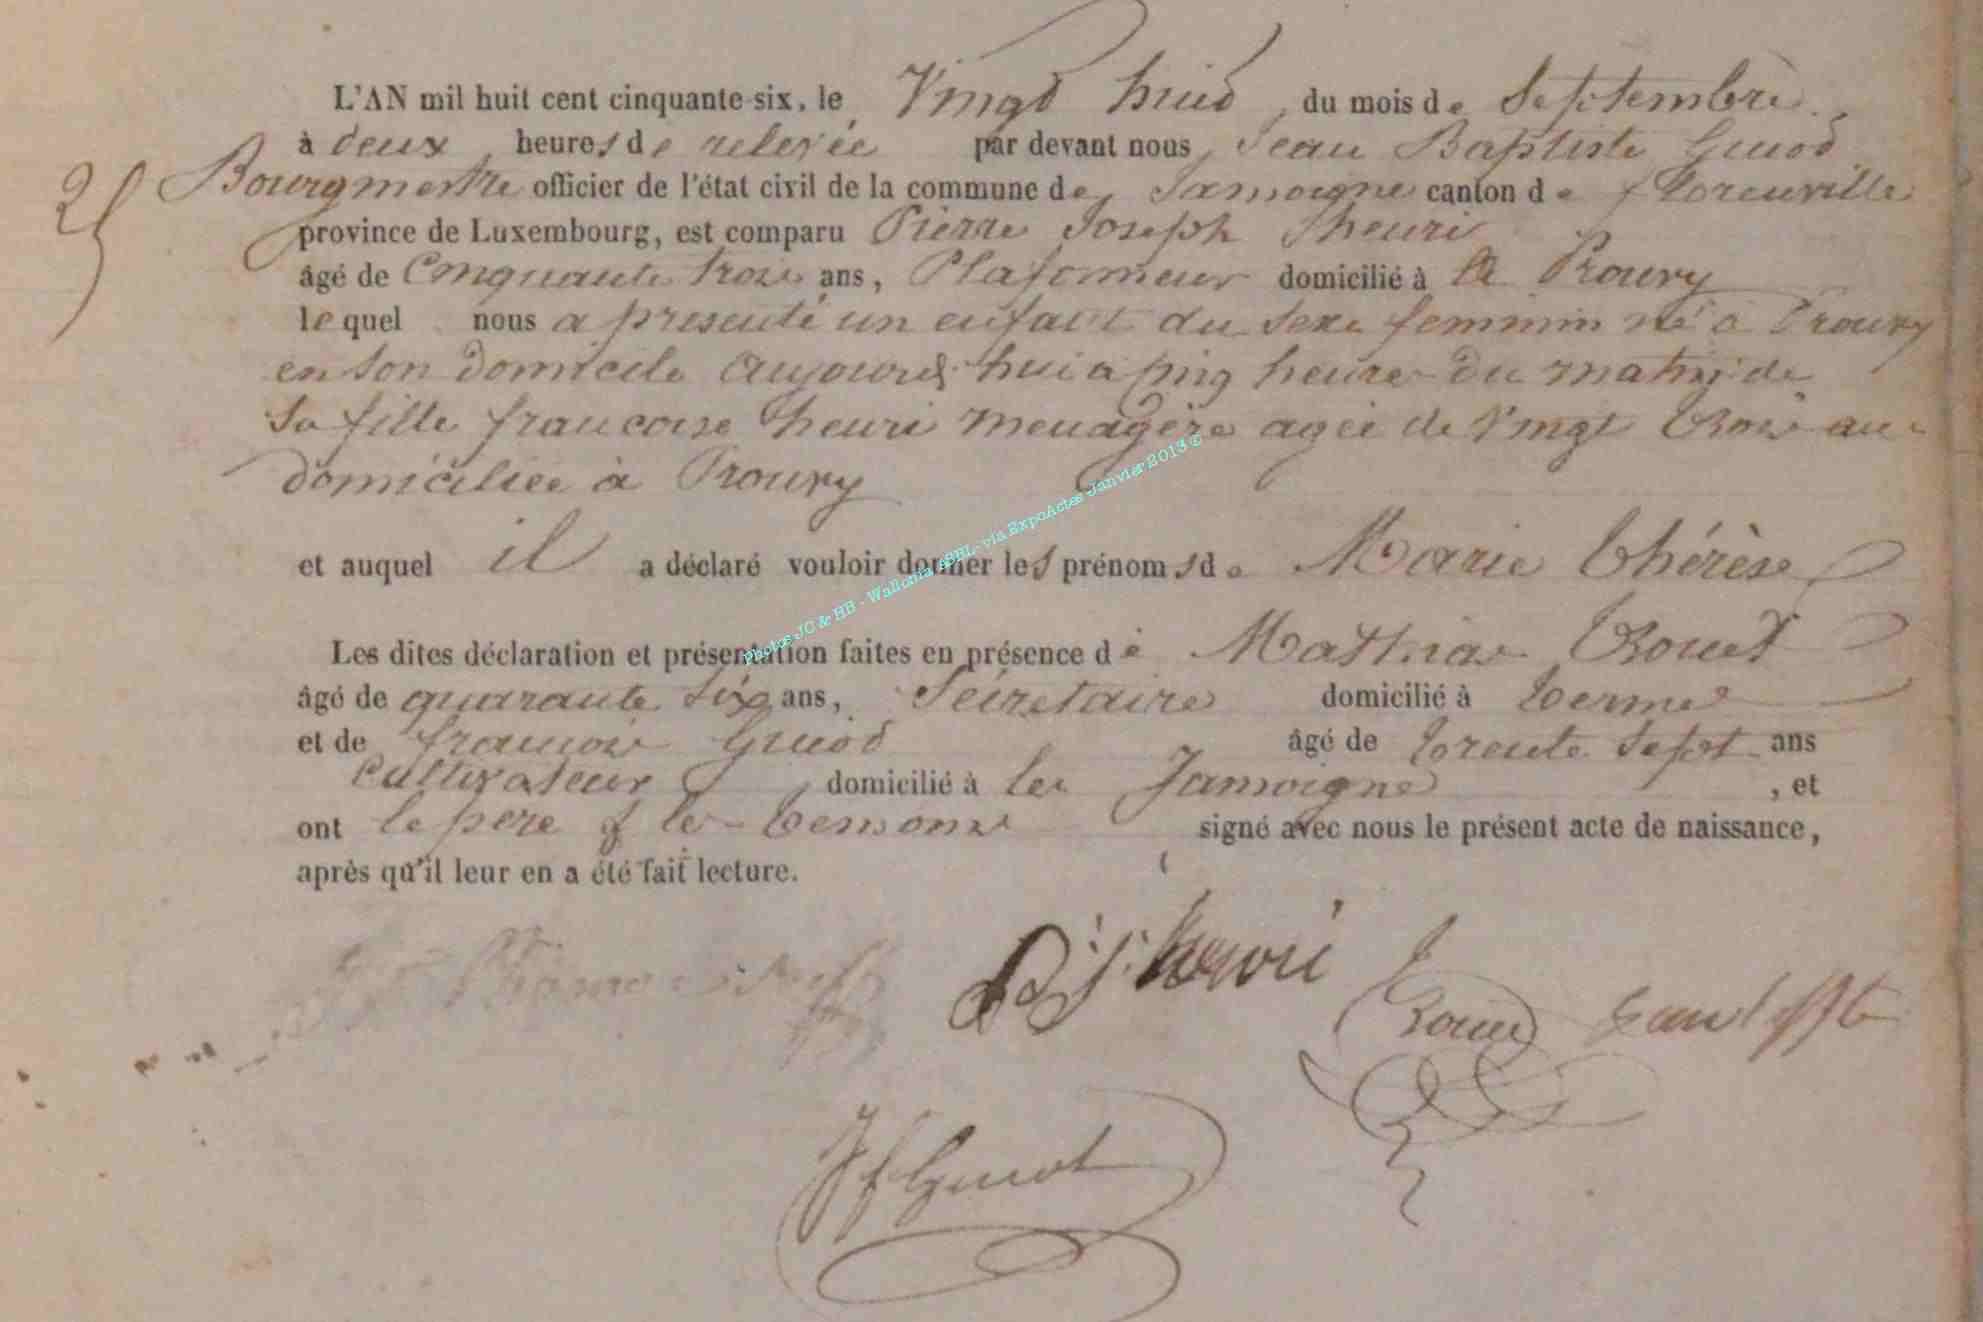 L'AN mil huit cent cinquante-six, le Vingt huit du mois de Septembre
à deux heures de relevée par devant nous Jean Baptiste Guiot
25 Bourgmestre officier de l'état civil de la commune de Jamoigne canton de florenville
province de Luxembourg, est comparu Pierre Joseph henri
âgé de Cinquante trois ans, Plafonneur domicilié à la Prouvy
lequel nous a presenté un enfant du sexe feminin né à Prouvy
en son domicile aujourd'hui a cinq heure du matin de
sa fille francoise henri menagère agée de vingt trois ans
domiciliée à Prouvy
et auquel il a déclaré vouloir donner les prénoms de Marie thérèse
Photos JC & HB - Wallonia ASBL- via ExpoActes Janvier 2013 ©
Les dites déclaration et présentation faites en présence de Mathias
âgé de quarante six ans, Secretaire domicilié à termes
et de francois Guiot âgé de trente sept ans
Cultivateur domicilié à les Jamoigne, et
ont le pere & les temoins signé avec nous le présent acte de naissance,
après qu'il leur en a été fait lecture.
P. J. henri
J f Guiot